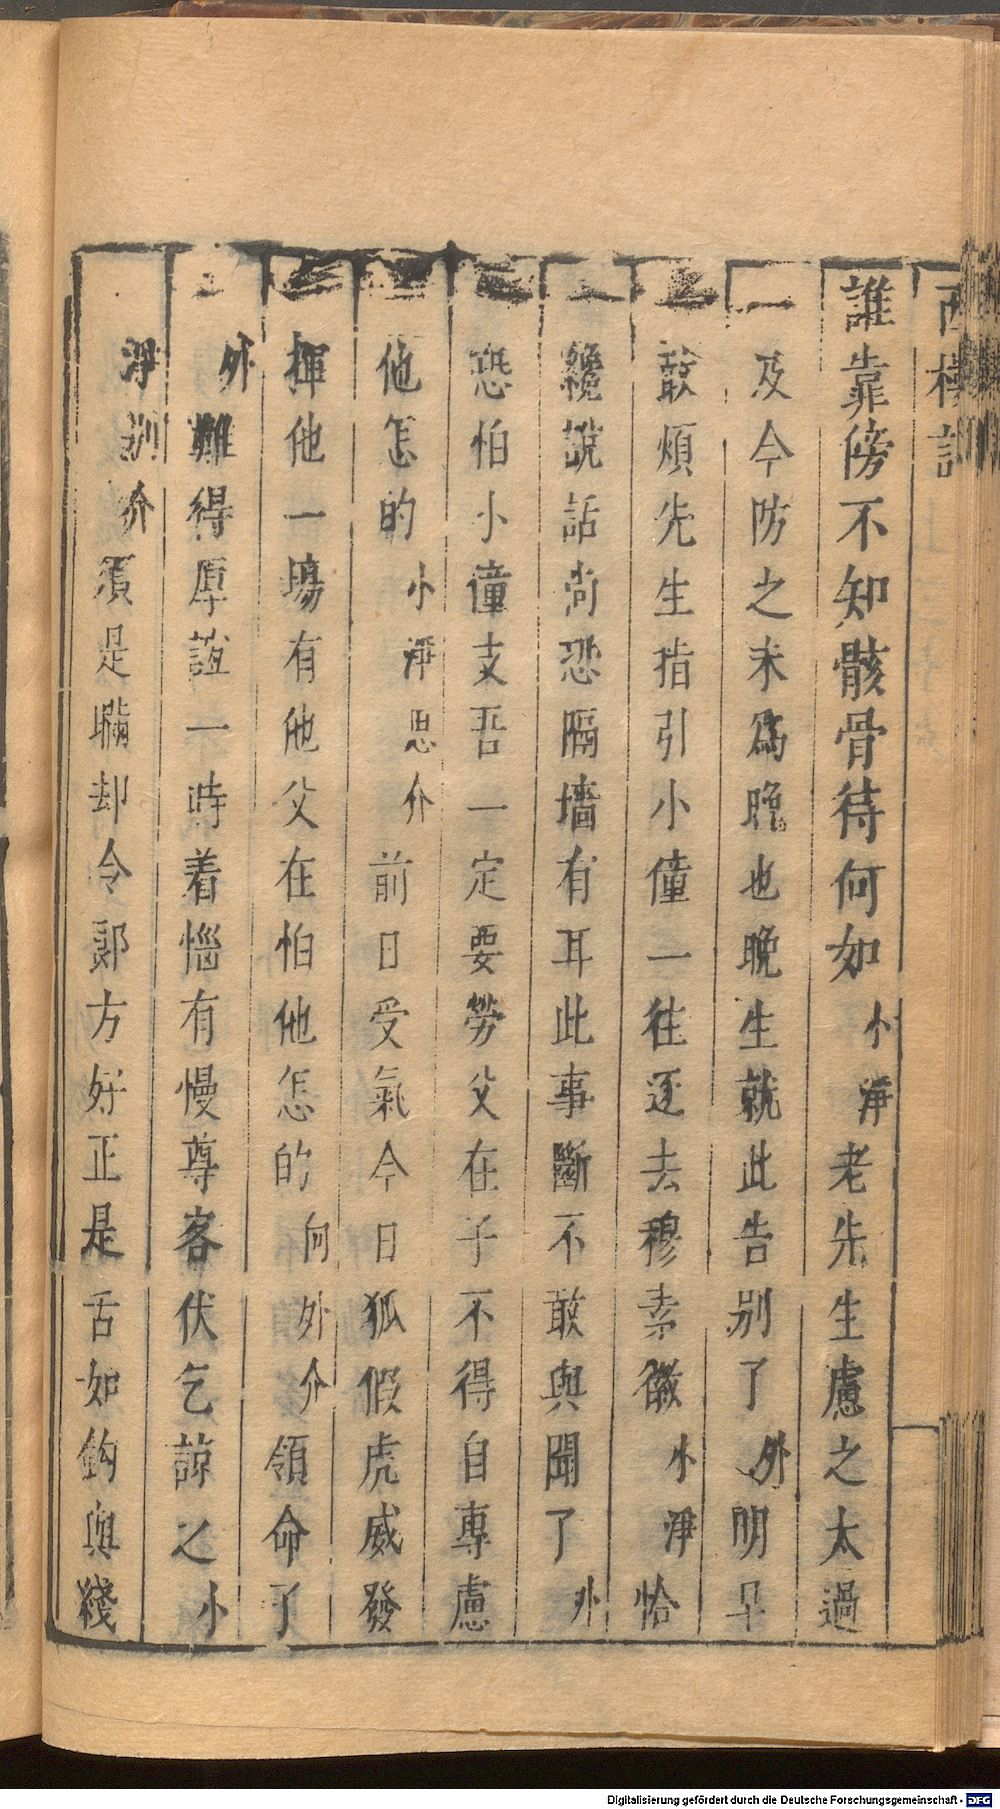 西樓記
誰靠傍不知骸骨待何如小淨老先生慮之太過
及今防之未爲晚也晚生就此告別了外明早
敢煩先生指引小僮一往逐去穆素徽小淨恰
纔說話尚恐隔墻有耳此事斷不敢與聞了外
恐怕小僮支吾一定要勞父在子不得自專慮
他怎的小淨思介前日受氣今日狐假虎威發
揮他一場有他父在怕他怎的向外介領命了
外難得厚誼一時着惱有慢尊客伏乞諒之小
淨別介須是瞞却令郎方好正是舌如鈎與綫
Digitalisierung gefördert durch die Deutsche Forschungsgemeinschaft - DFG